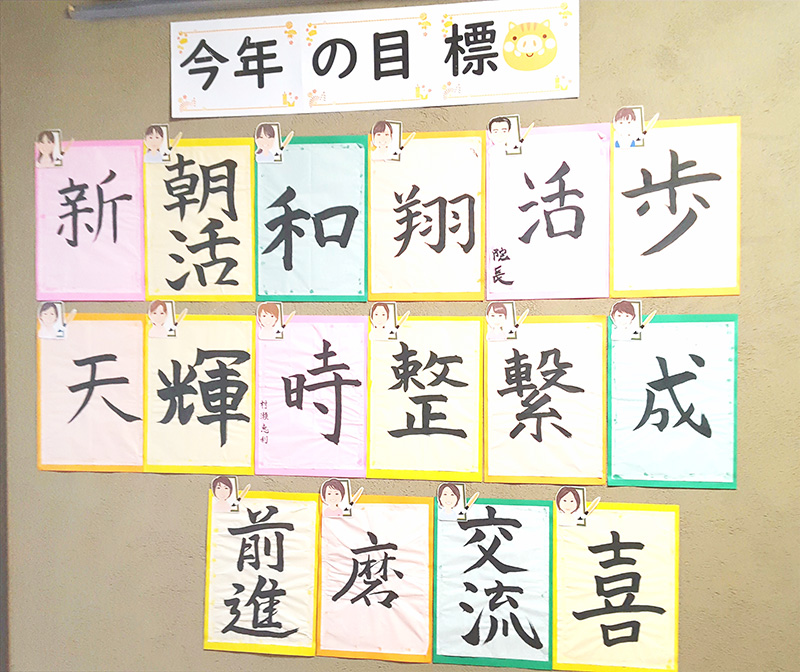 今年の目標
新
朝活
和
翔
活
院長
歩
天
輝
時
村瀬恵利
整
繋
成
前進
磨
交流
喜